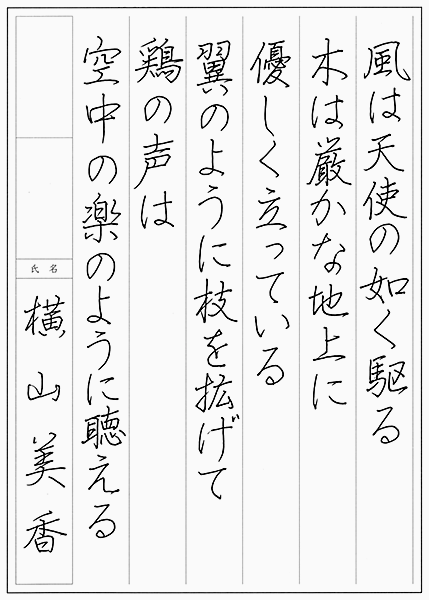 風は天使の如く駆る
木は厳かな地上に
優しく立っている
翼のように枝を拡げて
鶏の声は
空中の楽のように聴える
氏名
横山美香